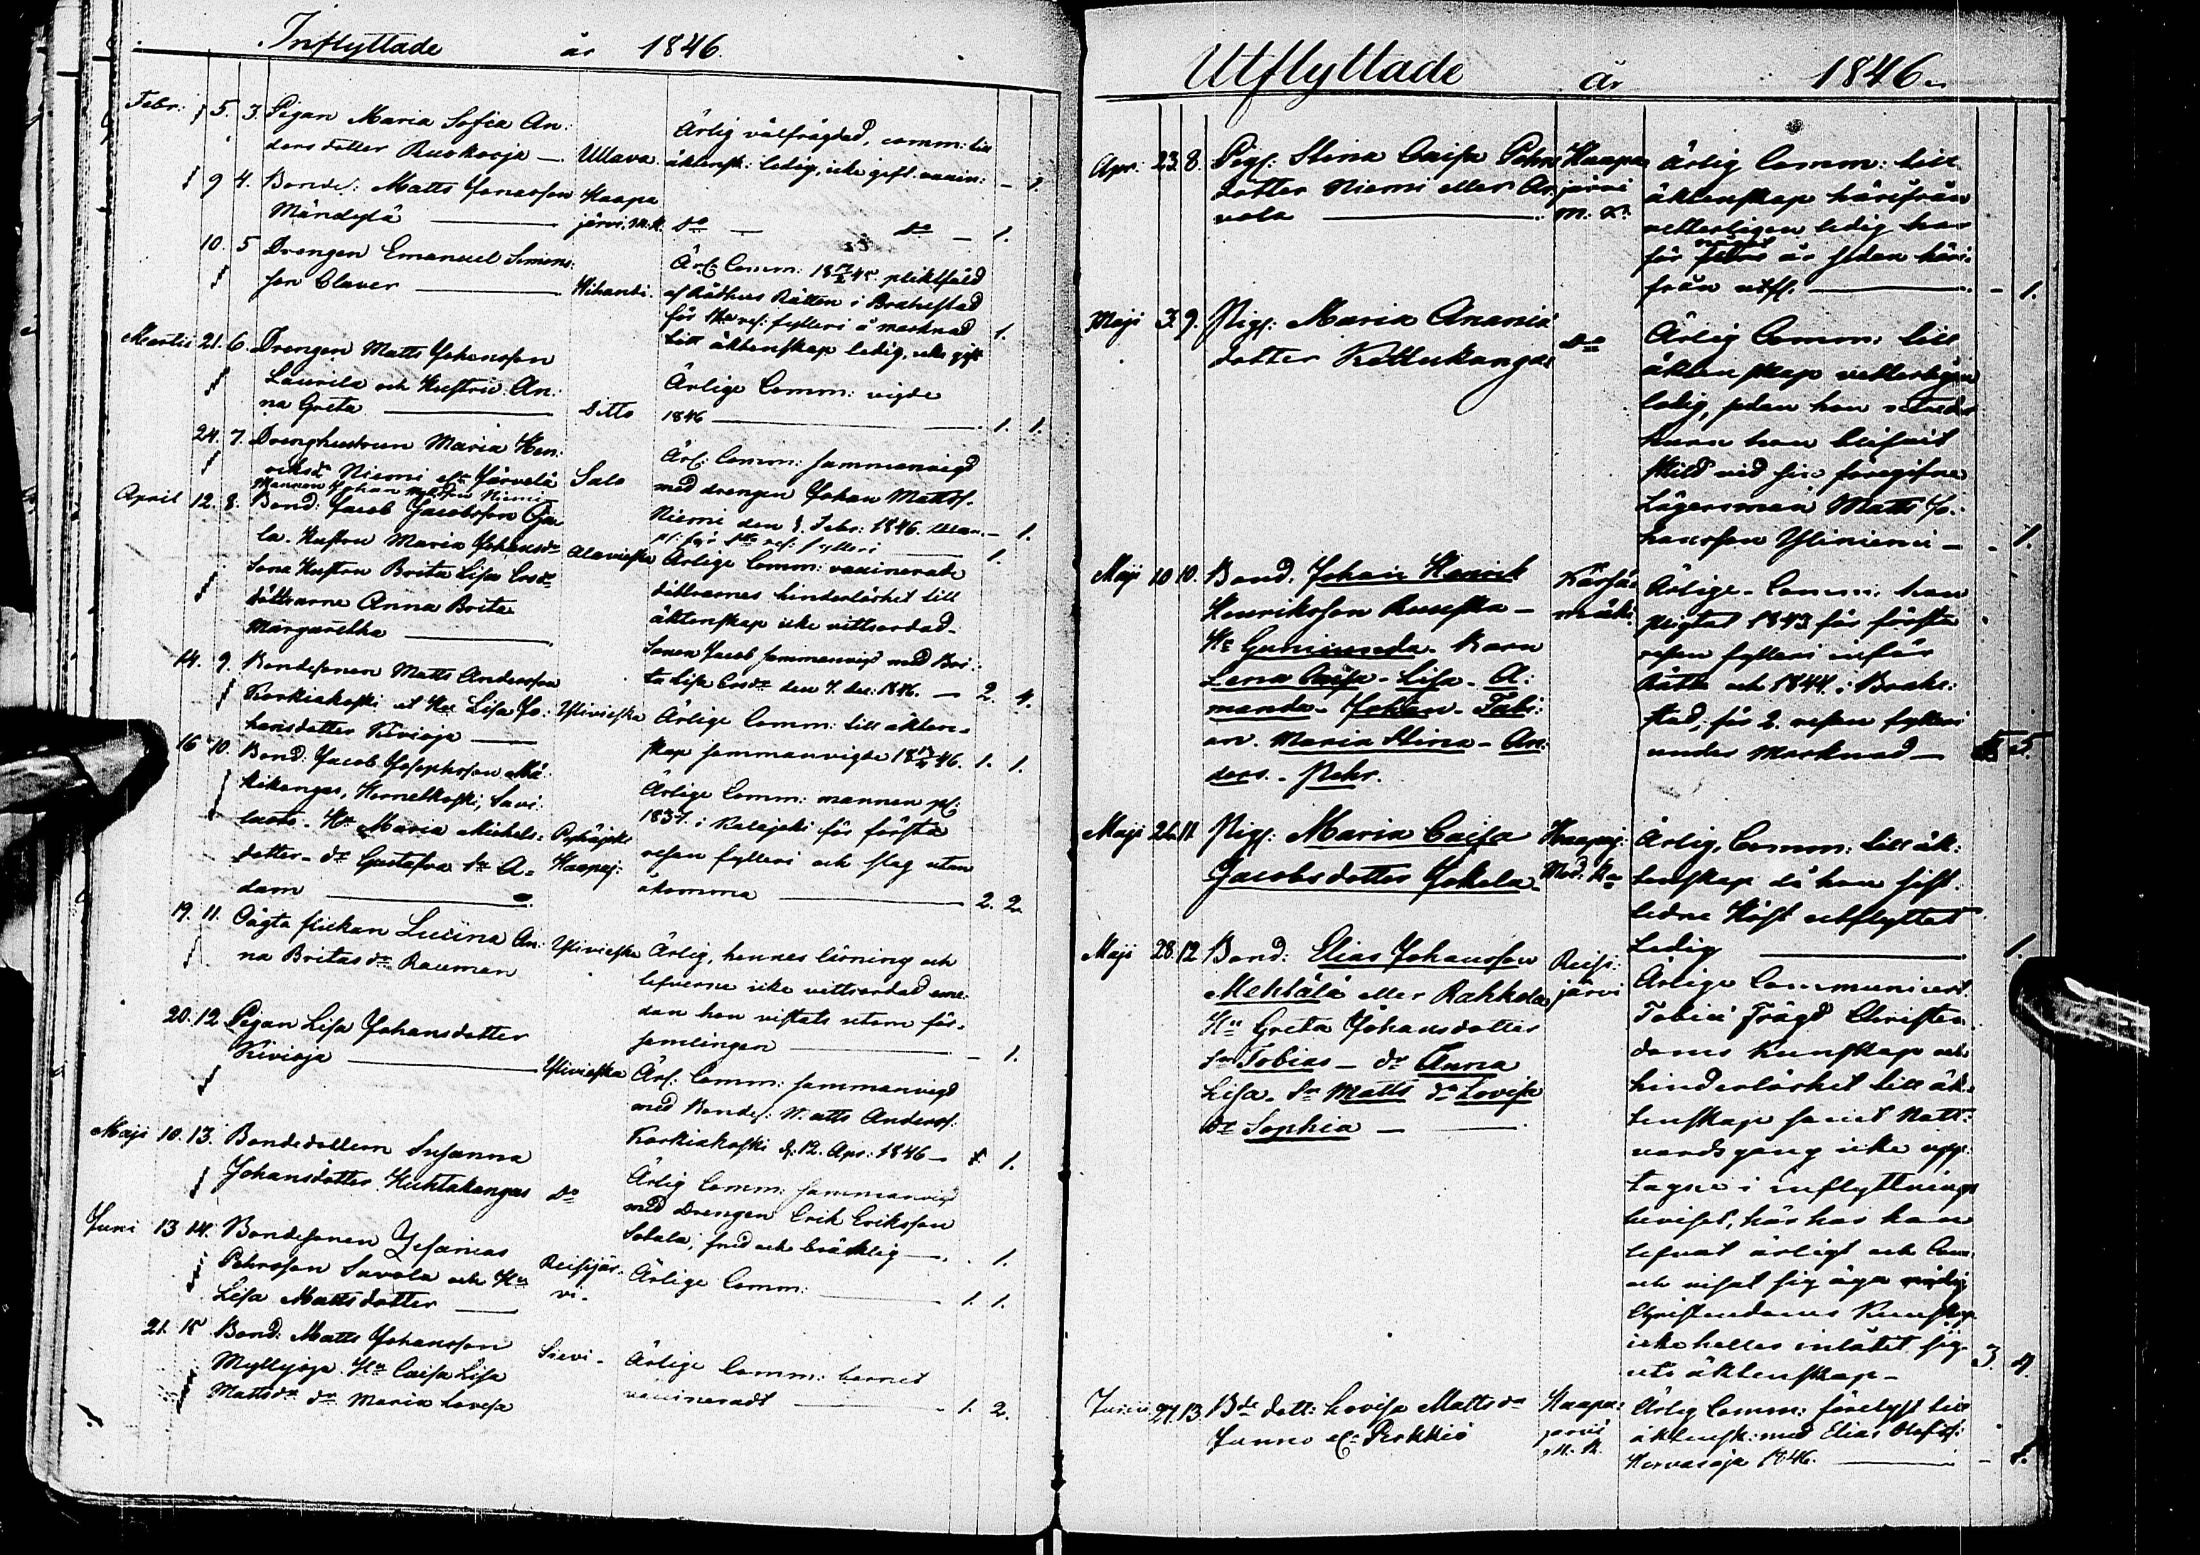 Inflyttade år 1846.
Febr: 5. 3. Pigan Maria Sofia An-
ders dotter Ruokoja — Ullava
Ärlig välfrägdad, comm: till
äktensk: ledig, icke gift. vaccin: - 1.
9 4. Bondes: Matts Jonasson
Mändylä — Haapa
järvi. M. K. Do — Do — 1.
10. 5 Drengen Emanuel Simons:
son Claver — Vihandi.
Ärl: Comm: pliktfäld
af Rådhus Rätten i Brahestad
för 1sta res: fylleri å marknad
till äktenskap ledig, icke gift 1.
Martii 21. 6. Drengen Matts Johansson
Laurila och Hustru An:
na Greta — Ditto
Ärlige Comm: vigde
1846 — 1. 1.
24. 7. Drenghustrun Maria Hen:
riksdr Niemi elr Järvelä Salo
Mannen Johan Niemi
Ärl: Comm: sammanvigd
med drengen Johan Mattss.
Niemi den Febr: 1846. - 1.
pl: för 1sta res: fylleri — 1.
April 12. 8. Bond: Jacob Jacobsson Oja
la. Hustru Maria Johansdr Alavieska
Sons Hustru Brita Lisa Ersdr
döttrarne Anna Brita
Margaretha —
Ärlige Comm: vaccinerade
döttrarnes hinderlöshet till
äktenskap icke vittsordad-
Sonen Jacob sammanvigd med Bri:
ta Lisa Ersdr den 7. dec: 1846. — 2. 4.
14. 9. Bondesonen Matts Andersson
Korkiakoski et Hu Lisa Jo: Ylivieska
hansdotter Kivioja —
Ärlige Comm: till äkten-
skap sammanvigde 46. 1. 1.
16 10. Bond: Jacob Josephsson Mä
kikangas, Hornelkoski, Savi:
luoto. Hu Maria Michels: Pyhäjoki
dotter. dr Gustafva Sn A- Haapaj:
dam —
Ärlige Comm: mannen pl:
1837. i Kalajoki för första
resan fylleri och slag utan
åkomma — 2. 2.
19. 11. Oägta flickan Luciina An: Ylivieska
na Britasdr Rauman
Ärlig, hennes läsning och
lefverne icke vittsordad eme:
dan hon vistats utom för-
samlingen — - 1.
20. 12. Pigan Lisa Johansdotter
Kivioja — Ylivieska
Ärl: Comm: sammanvigd
med Bondes: Matts Anderss.
Korkiakoski d. 12. Apr: 1846 — 1.
Maji 10. 13. Bondedottern Susanna
Johansdotter Huhtakangas Do
Ärlig Comm: sammanvigd
med drengen Erik Eriksson
Sotala, och bräcklig — 1.
Juni 13 14. Bondesonen Jesaias
Pehrsson Savola och Hu Reisjär-
Lisa Mattsdotter — vi-
Ärlige Comm: — 1. 1.
21. 15 Bond: Matts Johansson
Myllyoja. Hu Caisa Lisa Sievi-
Mattsdr dr Maria Lovisa
Ärlige Comm: barnet
vaccineradt — 1. 2.
Utflyttade år 1846.
Apr. 23. 8. Pigs: Stina Caisa Pehrs Haapa
dotter Niemi eller Ar- järvi
vola — M. K.
Ärlig Comm: till
äktenskap härifrån
vetterligen ledig har
för några år sedan häri-
från utfl. — - 1.
Maji 3. 9. Pigs: Maria Anania
dotter Kettukangas Do
Ärlig Comm: till
äktenskap vetterligen
ledig, sedan hon
hvarom hon blifvit
skild vid sin föregifne
Lägersman Matts Jo-
hansson Yliniemi — - 1.
Maji 10 10. Bond. Johan Henrik Kärsä
Henriksson Ruuska — mäki
Hu Gunimunda. Barn
Lena Caisa - Lisa - A:
manda - Johan - Fabi:
an. Maria Stina - An:
ders - Pehr.
Ärlige. Comm: han
pligtat 1843 för första
resan fylleri inför
Rätta och 1844 i Brahe:
stad, för 2. resan fylleri
under Marknad — 5.
Maji 26. 11 Pigs: Maria Caisa Haapaj:
Jacobsdotter Jokela. Mod. Ka
Ärlig, Comm: till äk:
tenskap då hon sist-
ledne Höst utflyttat
ledig — 1.
Maji 28. 12 Bond: Elias Johansson Reis:
Mehtälä eller Rahkola järvi
Hu Greta Johansdotter
Sn Tobias — dr Anna
Lisa. Sn Matts dr Lovisa
dr Sophia —
Ärlige Communicert
Tobias Frägd Christen
doms kunskap och
hinderlöshet till äk-
tenskap samt Natt-
vardsgång icke upp-
tagne i inflyttnings
beviset, här har han
lefvat ärligt och Com:
och visat sig äga nödig
Christendoms kunskap
icke heller inlåtit sig
uti äktenskap — 3. 4.
Junii 27. 13. Bde dott: Lovisa Mattsdr Haapa-
Junno elr Perkkiö järvi
M. K.
Ärlig Comm: förelyst till
äktensk: med Elias Olofss:
Korvasoja 1846. — - 1.